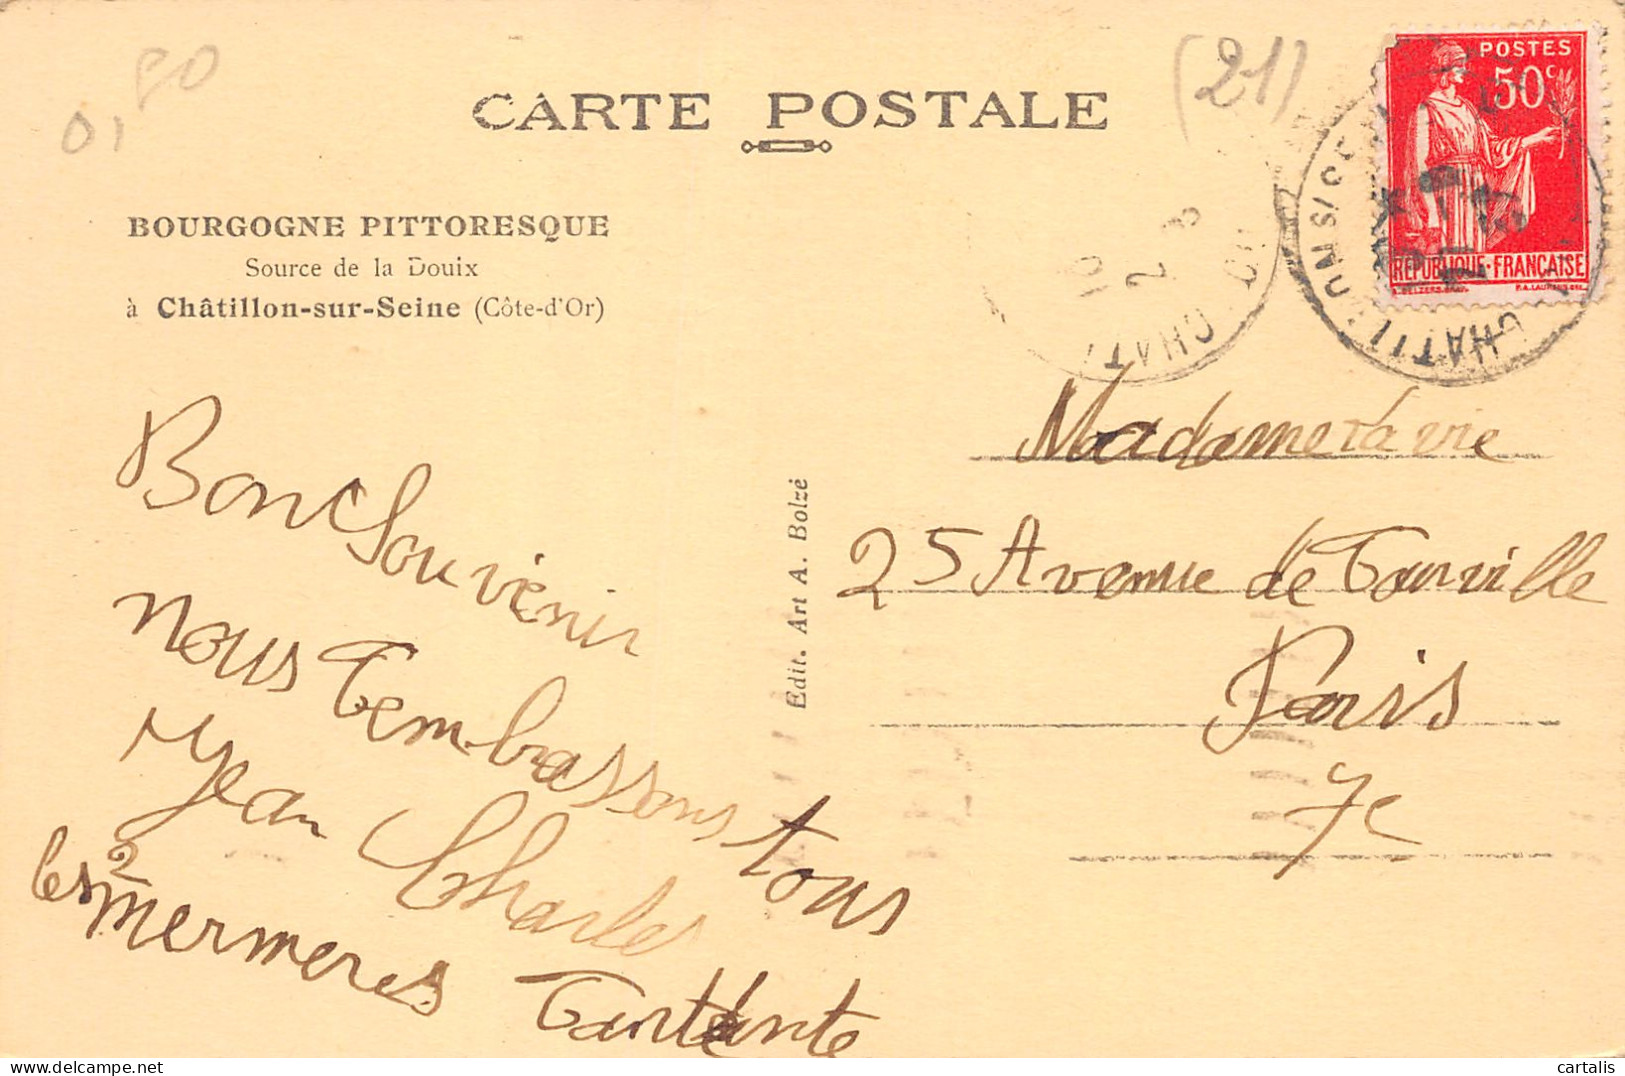 0,80
(21)
CARTE POSTALE
POSTES
50c
RÉPUBLIQUE·FRANÇAISE
BOURGOGNE PITTORESQUE
Source de la Douix
à Châtillon-sur-Seine (Côte-d'Or)
Edit. Art A. Bolzé
Bon Souvenir
nous t'embrassons tous
Jean Charles
les 2 mermeres Tante
Madame
25 Avenue de Tourville
Paris
7e
delcampe.net
cartalis